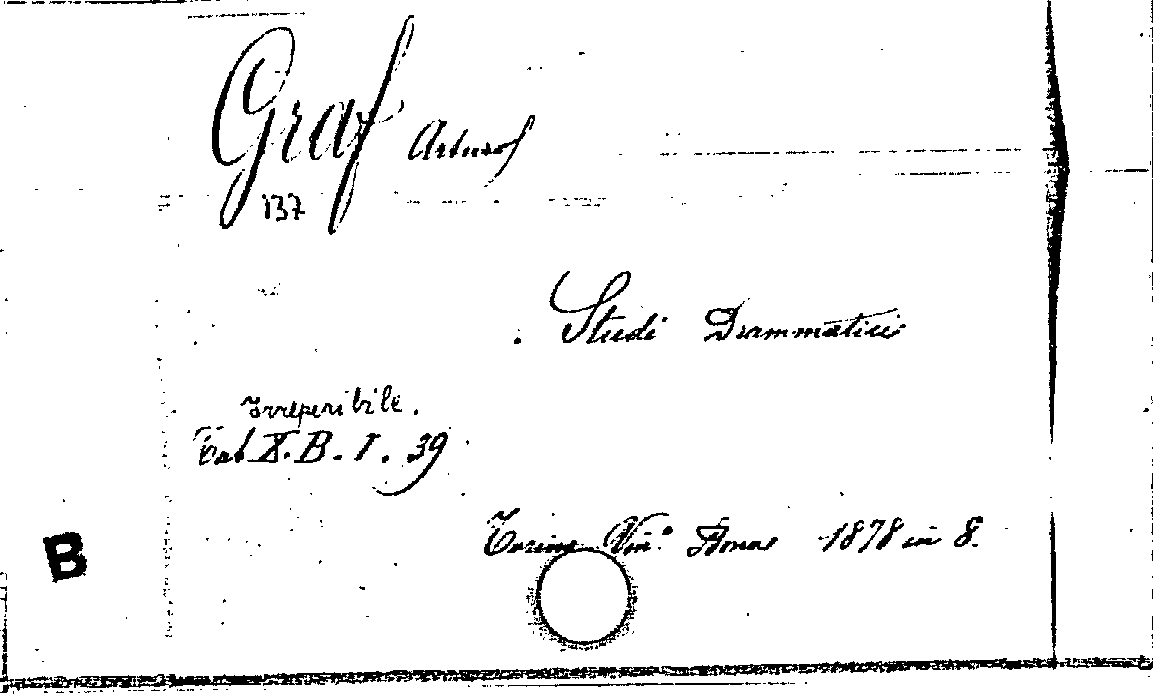 Graf Arturo
137
Studi Drammatici
Irreperibile.
Cat. X. B. I. 39
Torino Vin.º Bona 1878 in 8.
B